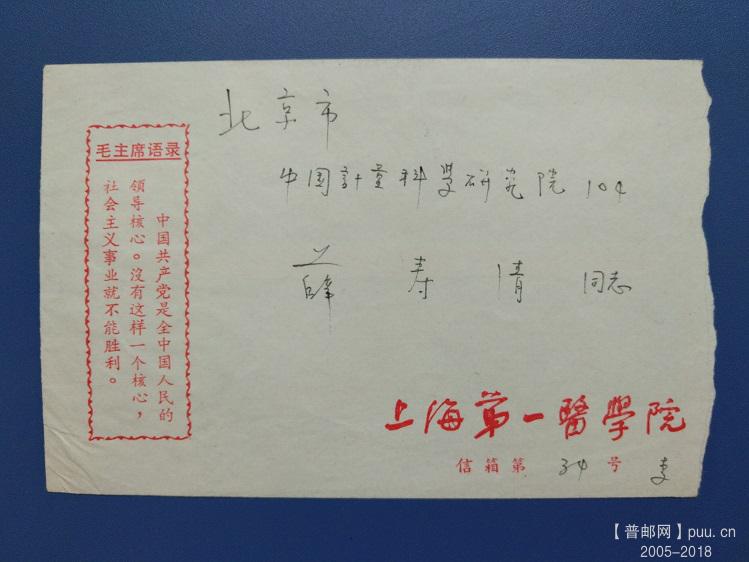 北京市
中国計量科學研究院 104
薛寿清 同志
毛主席语录
中国共产党是全中国人民的
领导核心。没有这样一个核心，
社会主义事业就不能胜利。
上海第一醫學院
信箱第 34 号 李
【普邮网】puu.cn
2005-2018